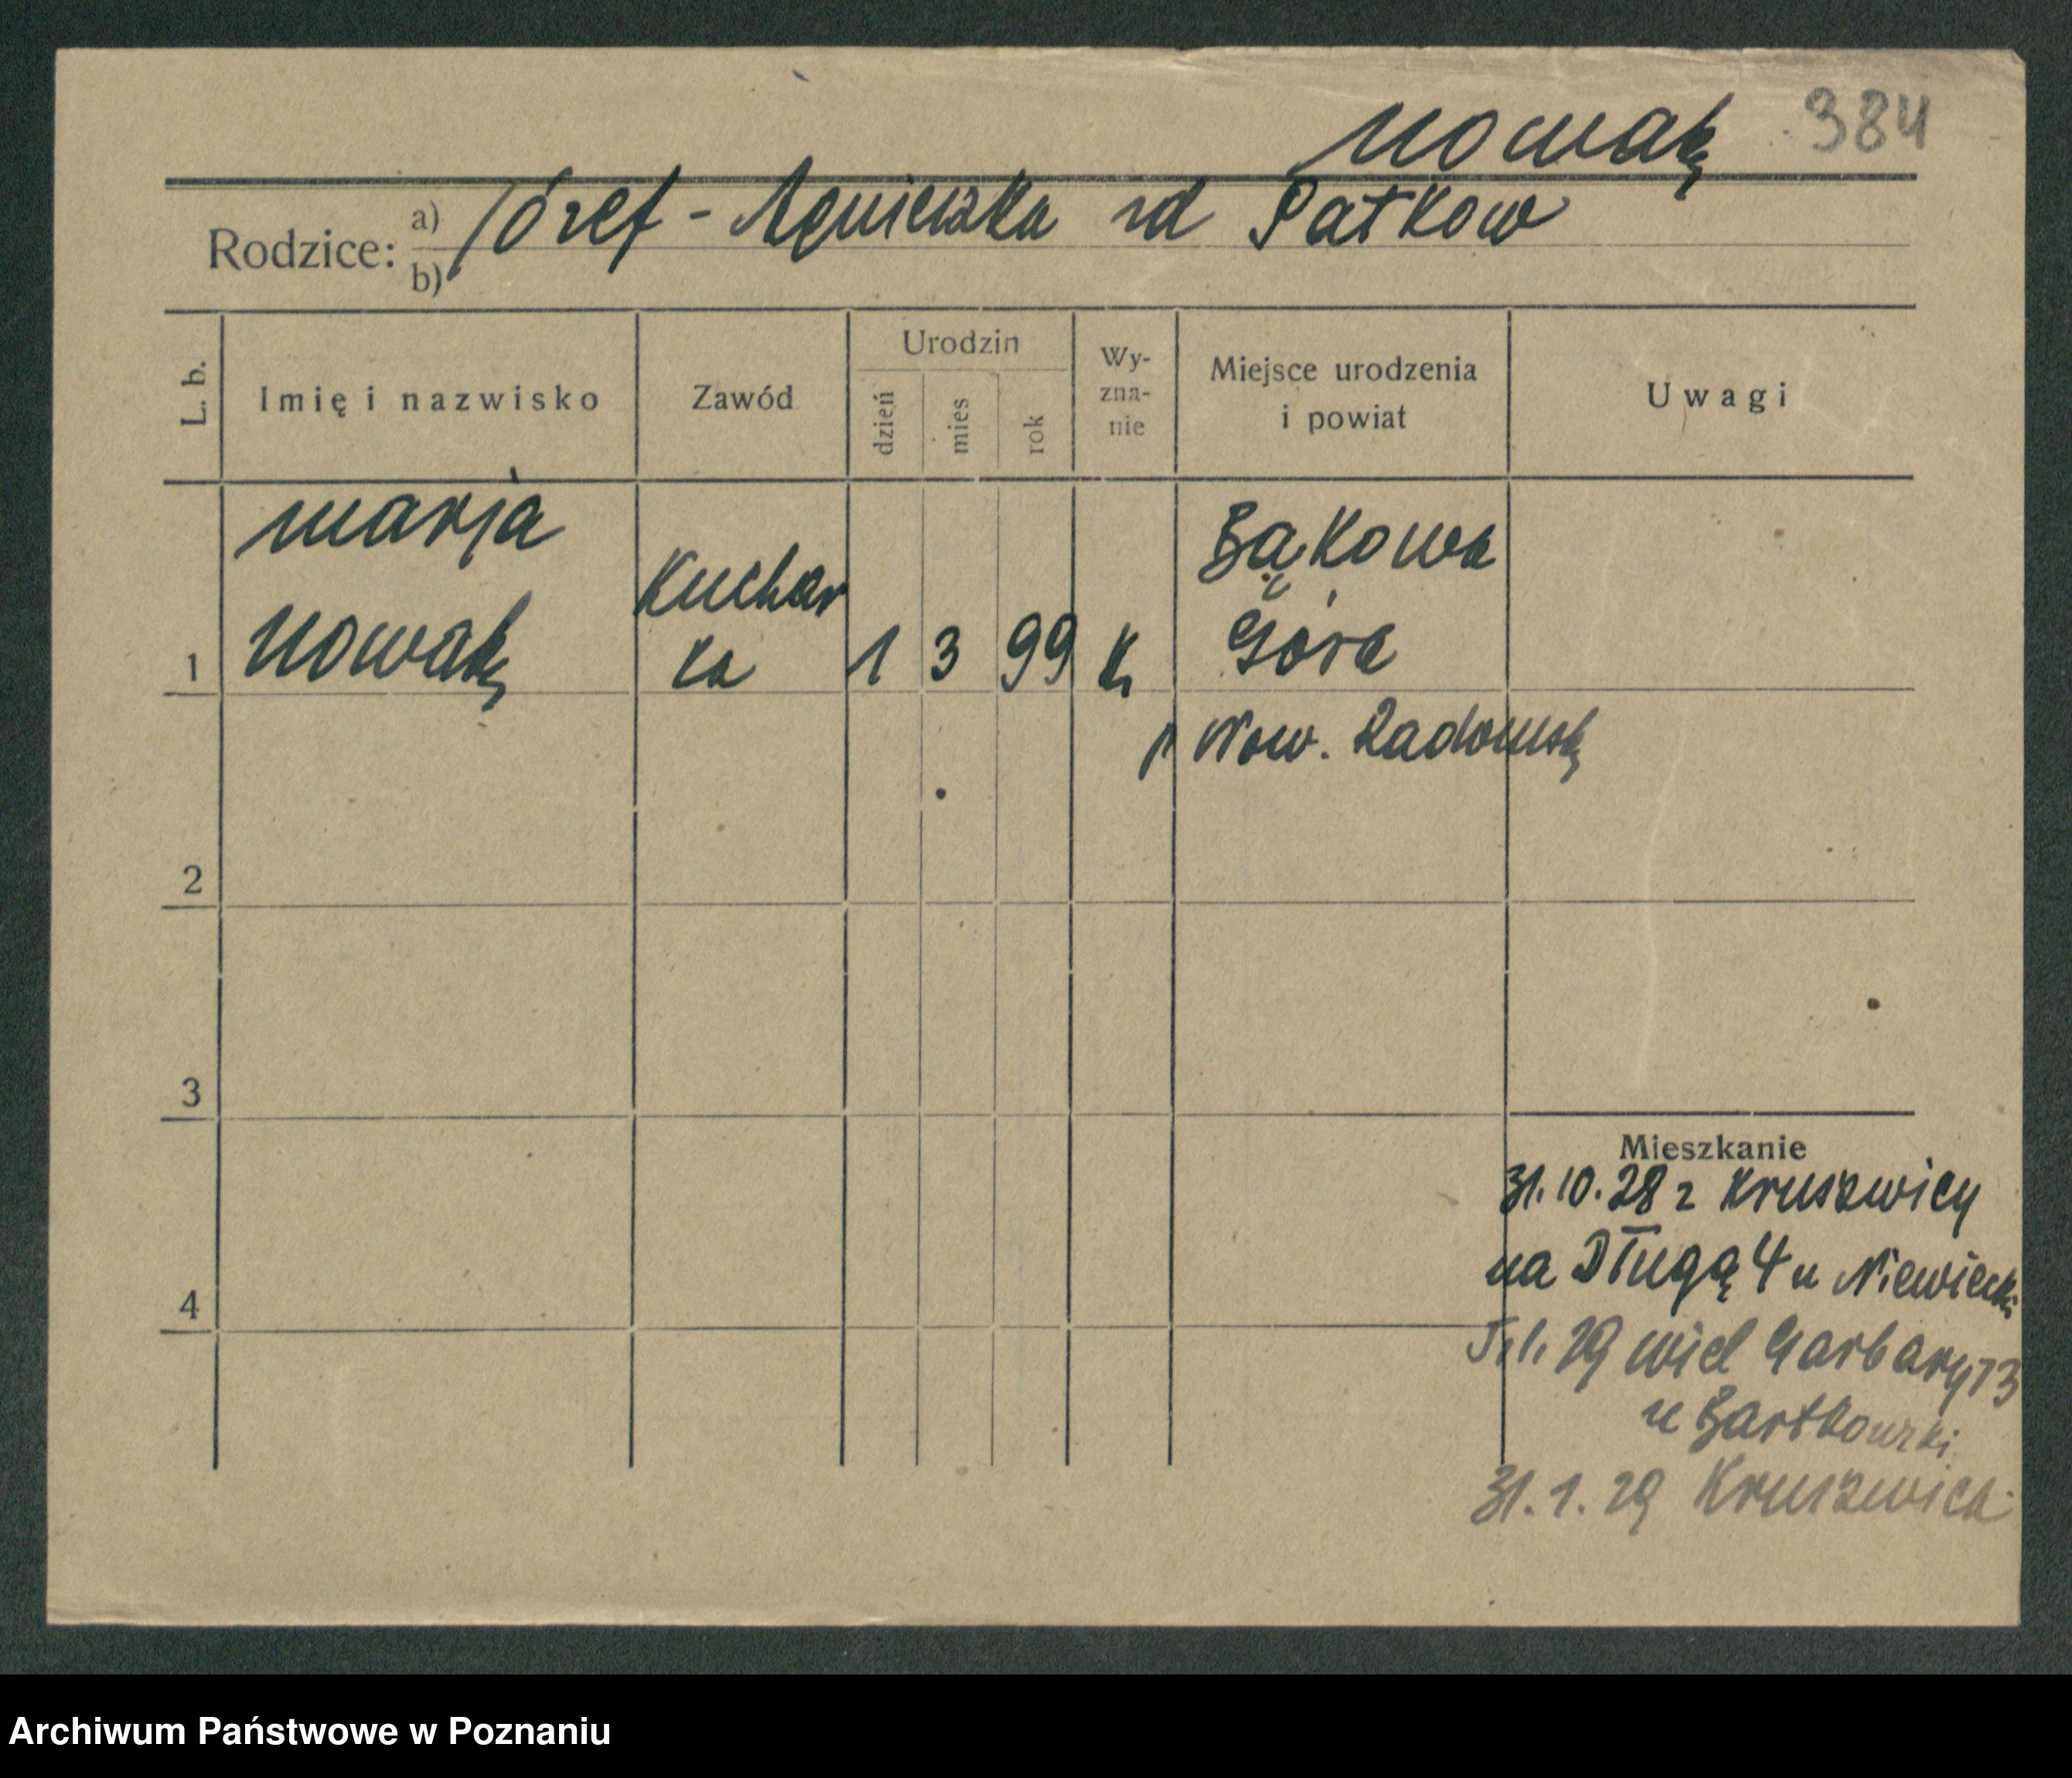 Nowak 384
Rodzice: a) Józef - Agnieszka zd Patkow
b)
L. b. Imię i nazwisko Zawód Urodzin dzień mies rok Wy-zna-nie Miejsce urodzenia i powiat Uwagi
Marja Bąkowa
Kuchar
1 Nowak ka 1 3 99 k Góra
p Now. Radomsk
2
3
Mieszkanie
31.10.28 z Kruszwicy
4 na Długą 4 u Niewiecki
29 Wiel Garbary 13
u Bartkowski
31.1.29 Kruszwica
Archiwum Państwowe w Poznaniu